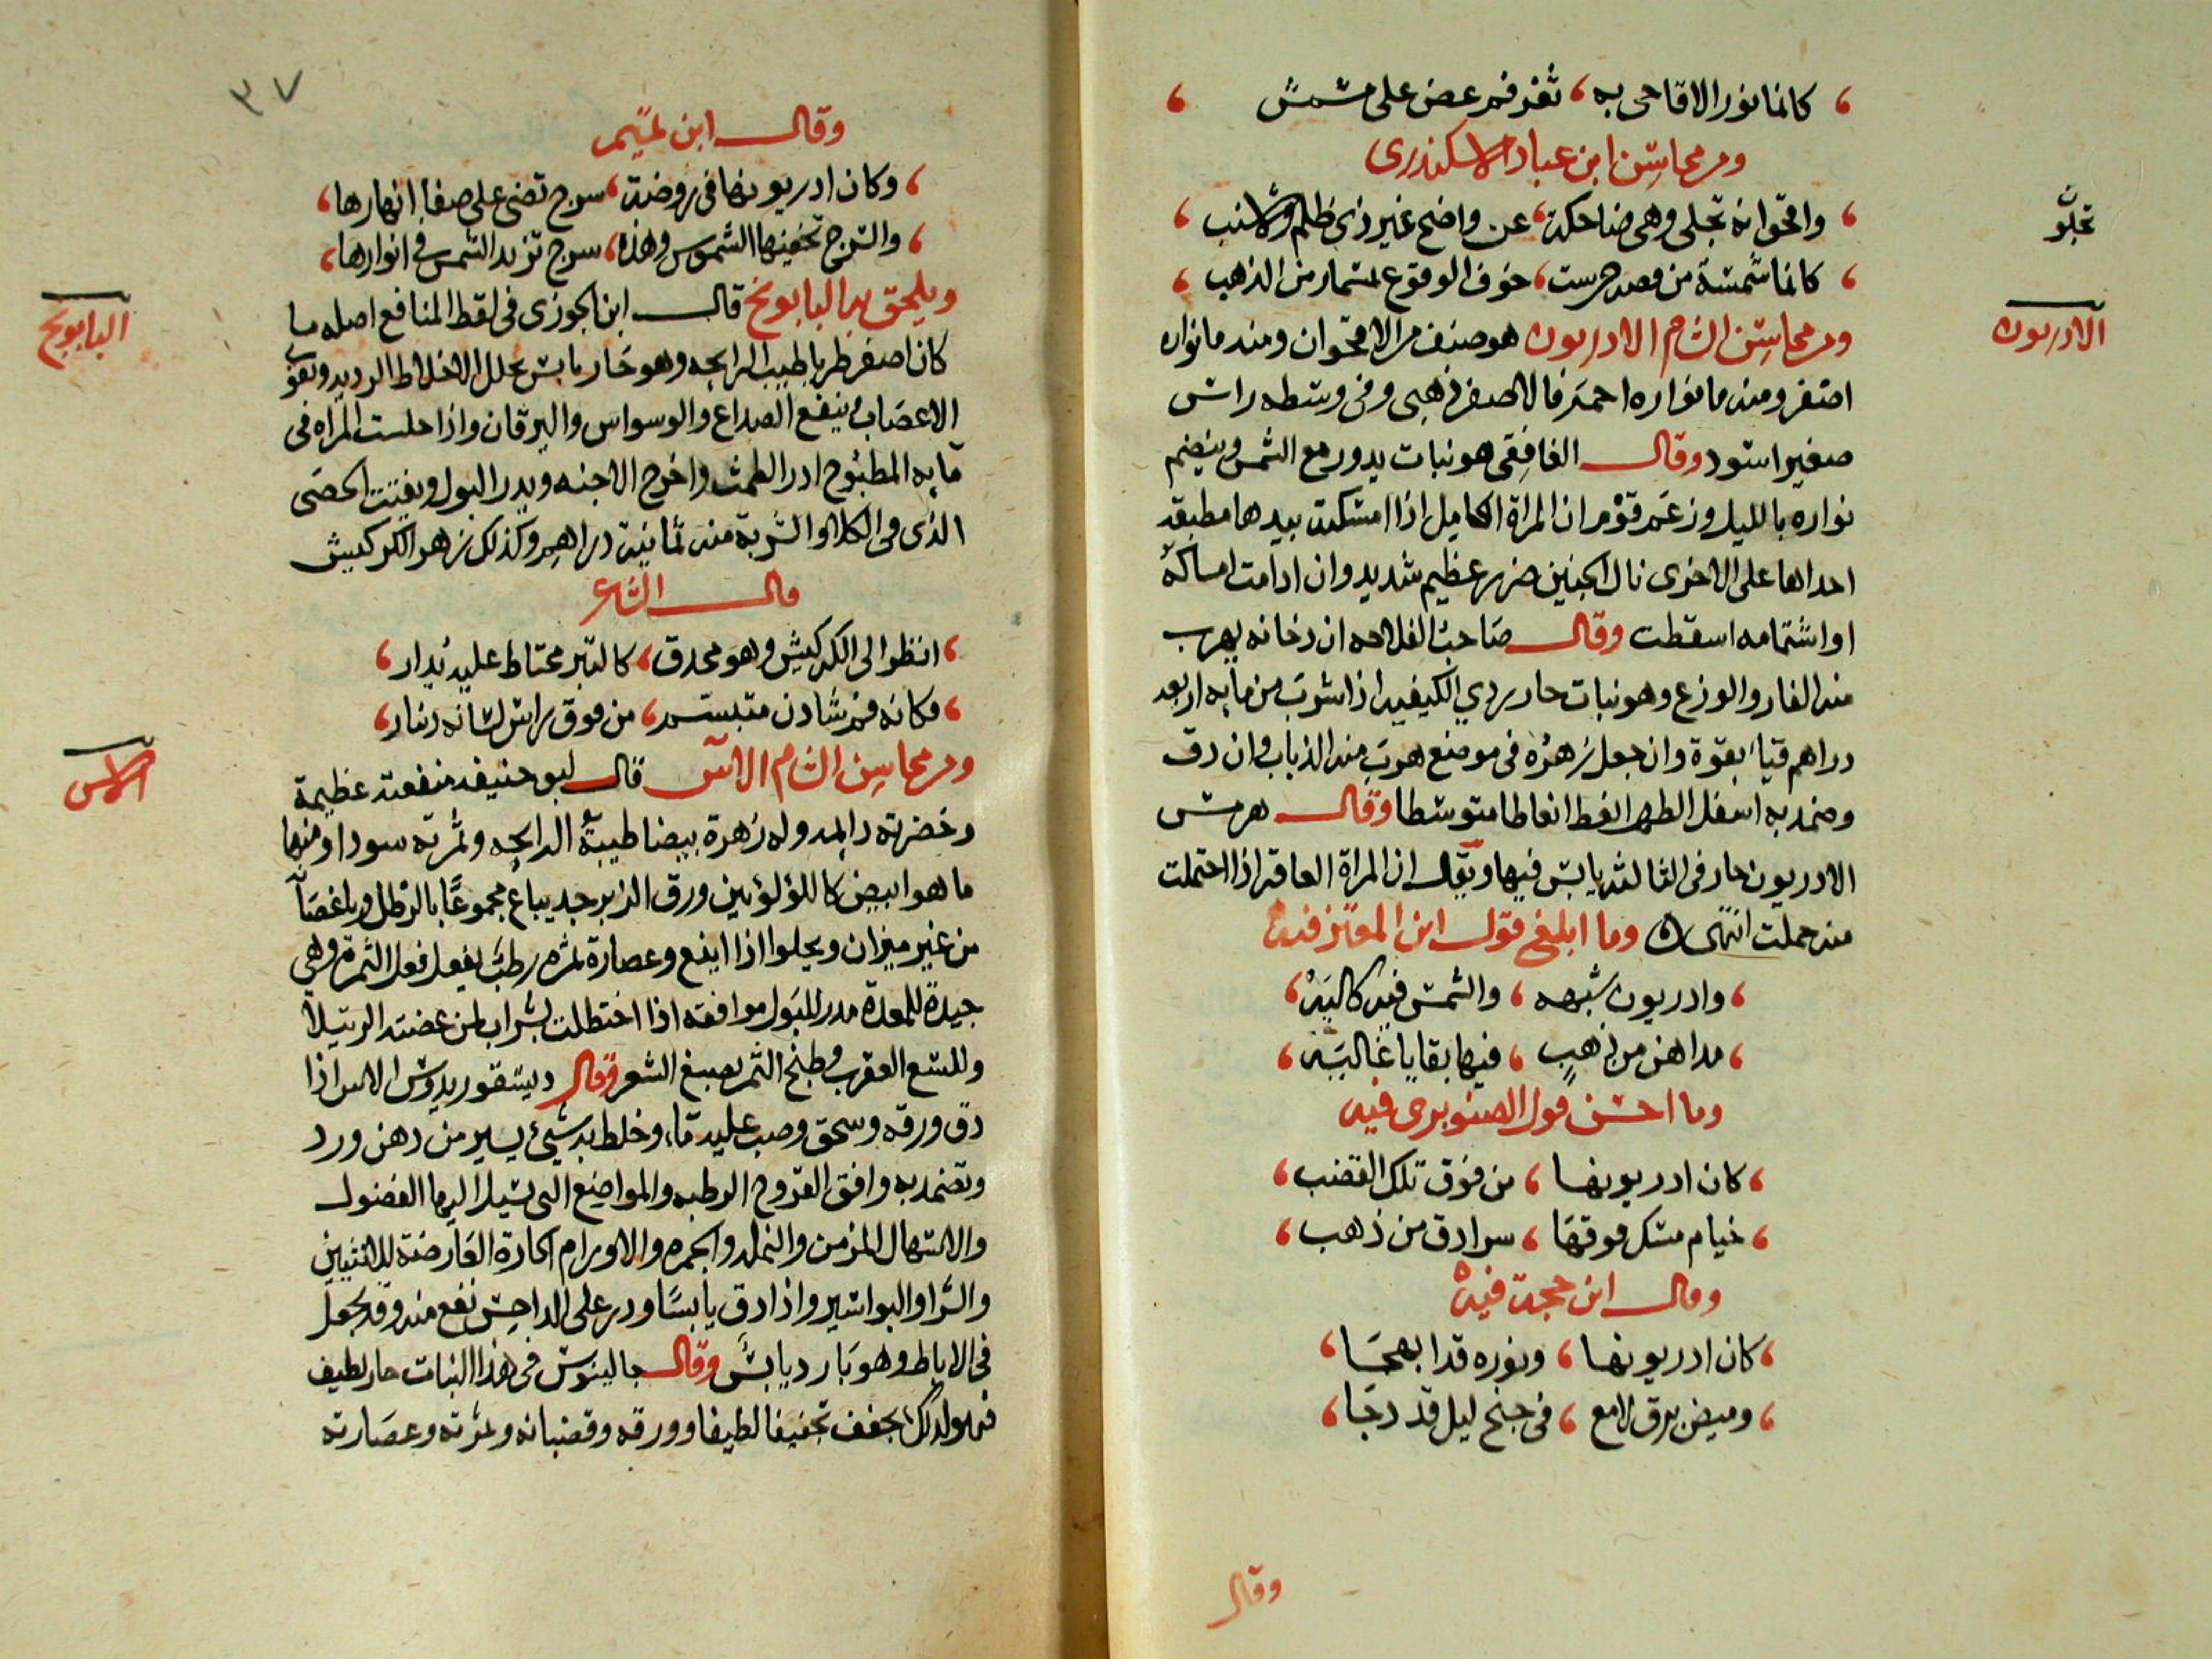 كانما نور الاقاحى به ، ثغر فم عض على مشمش
ومن محاسن ابن عباد الاسكندرى
واقحوانة تجلى وهى ضاحكة ، عن واضح غير ذى ظلم ولا شنب
تجلو
كانما شمسة من فضة حرست ، خوف الوقوع بمسمار من الذهب
ومن محاسن الشام الادريون هو صنف من الاقحوان ومنه ما نواره
الادريون
اصفر ومنه ما نواره احمر فالاصفر ذهبى وفى وسطه راس
صغير اسود وقال الغافقى هو نبات يدور مع الشمس وينضم
نواره بالليل وزعم قوم ان المراة الحامل اذا امسكت بيدها مطبقة
احداها على الاخرى نال الجنين ضرر عظيم شديد وان ادامت امساكه
او اشتمامه اسقطت وقال صاحب الفلاحه ان دخانه يهرب
منه الفار والوزغ وهو نبات حار ردي الكيفيه اذا شرب من مايه اربعة
دراهم قيا بقوة وان جعل زهره فى موضع هرب منه الذباب وان دق
وضمد به اسفل الظهر انعظ انعاظا متوسطا وقال هرمس
الادريون حار فى الثالثه يابس فيها ويقال ان المراة العاقر اذا احتملت
منه حملت انتهى وما ابلغ قول ابن المعتز فيه
وادريون شبهه ، والشمس فيه كاليه
مداهن من ذهب ، فيها بقايا غاليه
وما احسن قول الصنوبرى فيه
كان ادريونها ، من فوق تلك القضب
خيام مسك فوقها ، سرادق من ذهب
وقال ابن حجة فيه
كان ادريونها ، ونوره قد ابهجا
وميض برق لامع ، فى جنح ليل قد دجا
وقال
٣٧
وقال ابن تميم
وكان ادريونها فى روضة ، سرج تضى على صفا انهارها
والسرج تخفيها الشموس وهذه ، سرج تزيد الشمس فى انوارها
ويلحق به البابونج قال ابن الجوزى فى لقط المنافع اصله ما
البابونج
كان اصفر طريا طيب الرايحه وهو حار يابس يحلل الاخلاط الرديه ويقوى
الاعصاب وينفع الصداع والوسواس واليرقان واذا جلست المراه فى
مايه المطبوخ ادر الطمث واخرج الاجنه ويدر البول ويفتت الحصى
الذى فى الكلا والشربة منه ثمانية دراهم وكذلك زهر الكركيش
قال الشاعر
انظر الى الكركيش وهو محدق ، كالتبر محتاط عليه يدار
فكانه فم شادن متبسم ، من فوق راس لسانه دينار
ومن محاسن الشام الاس قال ابو حنيفه منفعته عظيمة
الاس
وخضرته دايمه وله زهرة بيضا طيبة الرايحه وثمرته سودا ومنها
ما هو ابيض كاللؤلؤ بين ورق الزبرجد يباع مجموعا بالرطل وباغصانه
من غير ميزان ويحلوا اذا اينع وعصارة ثمره رطبا يفعل فعل الثمرة وهى
جيدة للمعدة مدر للبول موافقه اذا اختطلت بشراب لمن عضته الرتيلا
وللسع العقرب وطبخ الثمر يصبغ الشعر وقال ديسقوريدوس الاس اذا
دق ورقه وسحق وصب عليه ماء وخلط به شيئ يسير من دهن ورد
وتضمد به وافق القروح الرطبه والمواضع التى تسيل اليها الفضول
والاسهال المزمن والنمله والجمره والاورام الحارة العارضة للانثيين
والشرا والبواسير واذا دق يابسا وذر على الداحس نفع منه وقد يجعل
فى الاباط وهو بارد يابس وقال جالينوس فى هذا النبات حار لطيف
فهو لذلك يجفف تجفيفا لطيفا وورقه وقضبانه وثمرته وعصارته